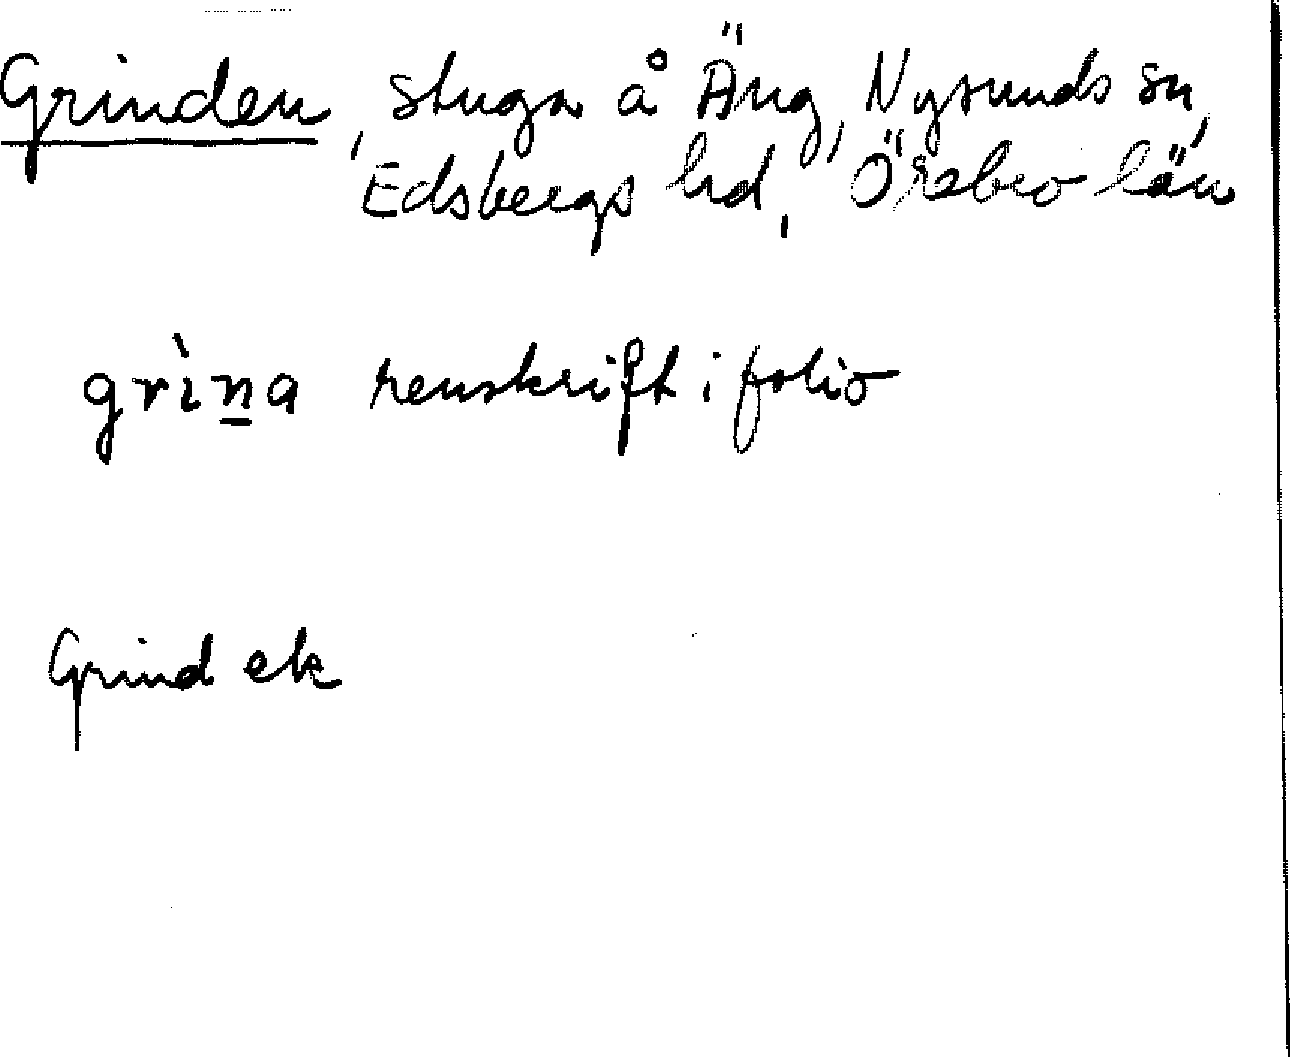 Grinden, stuga å Äng, Nysunds sn,
Edsbergs hd, Örebro län
grìna renskrift i folio
Grind ek